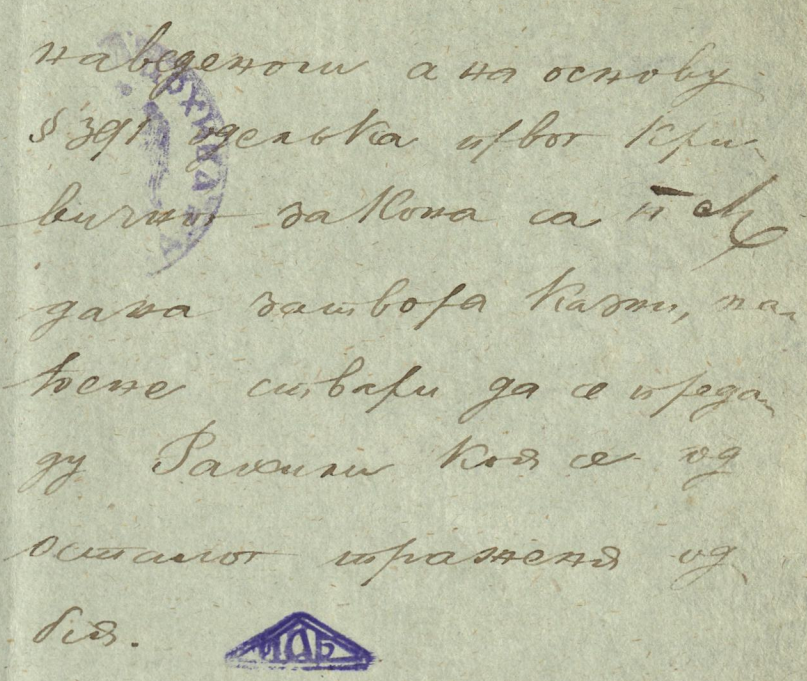 наведеноги а на основу
§ 391 оделька првог Кри-
вичног закона са петь
дана затвора казни, на-
ђене ствари да се преда-
ду Рахили коя се од
осталог траженя од-
бія.
ИАБ